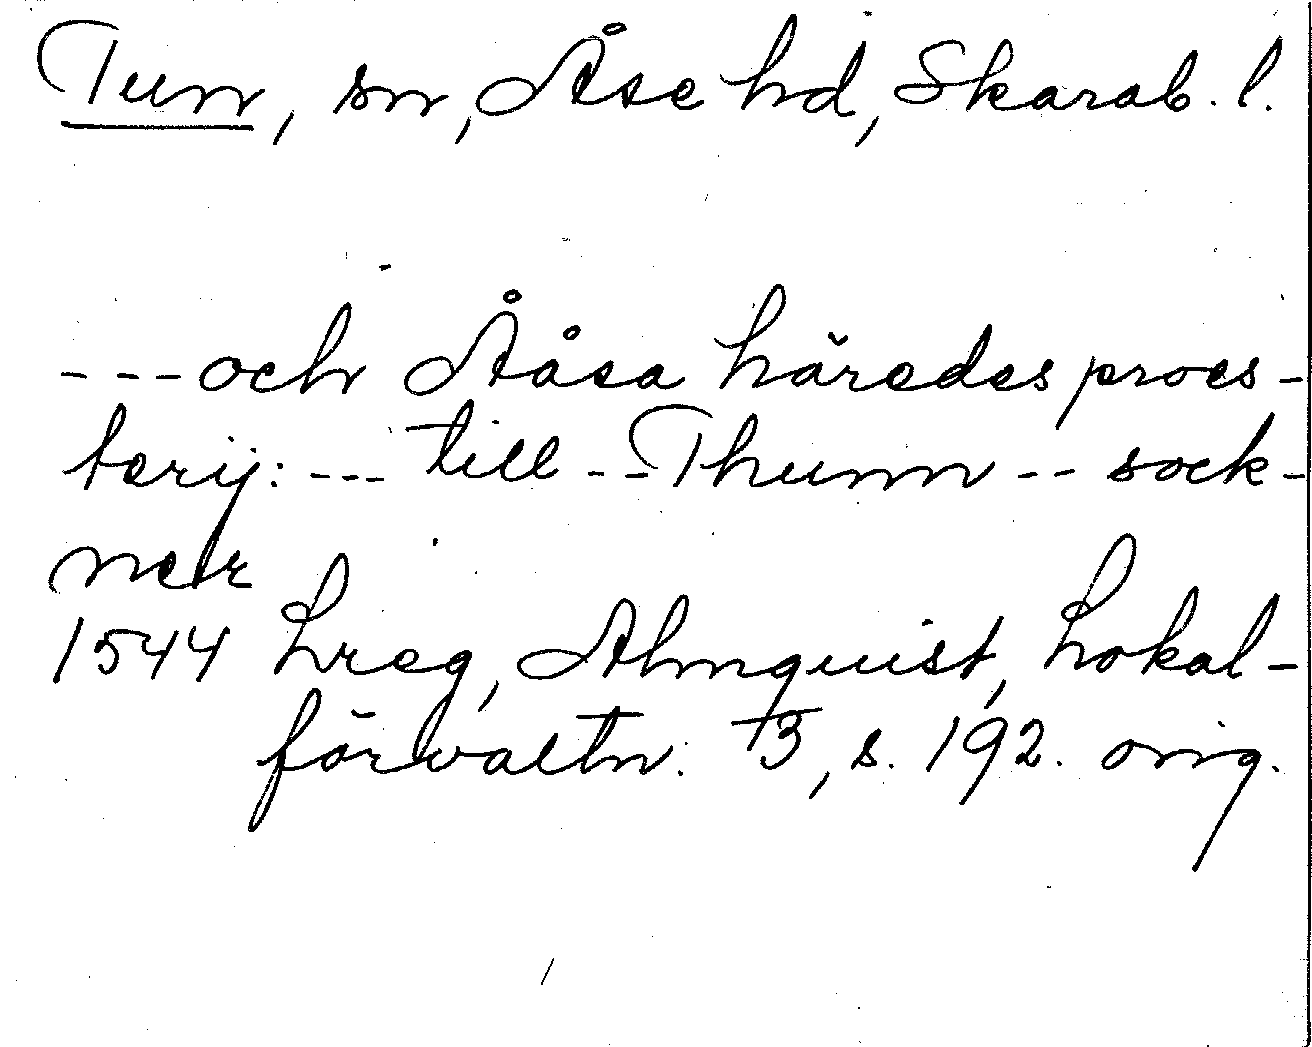 Tun, sn, Åse hd, Skarab. l.
---och Ååsa häredes proes-
terij: --- till -- Thunn -- sock-
ner
1544 Lreg, Almquist, Lokal-
förvaltn. 73, s. 192. orig.